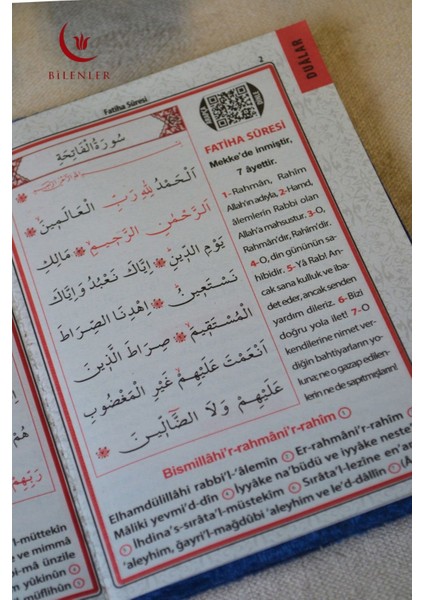 BİLENLER
Fatiha Sûresi
2
DUALAR
سُورَةُ الْفَاتِحَةِ
اَلْحَمْدُ لِلّٰهِ رَبِّ الْعَالَمِينَ
اَلرَّحْمٰنِ الرَّحِيمِ مَالِكِ
يَوْمِ الدِّينِ اِيَّاكَ نَعْبُدُ وَاِيَّاكَ
نَسْتَعِينُ اِهْدِنَا الصِّرَاطَ
الْمُسْتَقِيمَ صِرَاطَ الَّذِينَ
اَنْعَمْتَ عَلَيْهِمْ غَيْرِ الْمَغْضُوبِ
عَلَيْهِمْ وَلَا الضَّالِّينَ
FATİHA SÛRESİ
Mekke'de inmiştir,
7 âyettir.
1- Rahmân, Rahîm
Allah'ın adıyla, 2-Hamd,
âlemlerin Rabbi olan
Allah'a mahsustur. 3-O,
Rahmân'dır, Rahîm'dir.
4-O, din gününün sa-
hibidir. 5- Yâ Rab! An-
cak sana kulluk ve iba-
det eder, ancak senden
yardım dileriz. 6-Bizi
doğru yola ilet! 7- O
kendilerine nimet ver-
diğin bahtiyarların yo-
luna; ne o gazap edilen-
lerin ne de sapıtmışların!
Bismillâhi'r-rahmâni'r-rahîm
Elhamdülillâhi rabbi'l-'âlemîn Er-rahmâni'r-rahîm
Mâliki yevmi'd-dîn İyyâke na'büdü ve iyyâke neste
İhdina's-sırâta'l-müstekîm Sırâta'l-lezîne en'a
'aleyhim, ğayri'l-mağdûbi 'aleyhim ve le'd-dâllîn
رَبِّهِمْ
'l-müttekîn
e ve mimmâ
bi-mâ ünzile
m yûkinûn
l-müflihûn